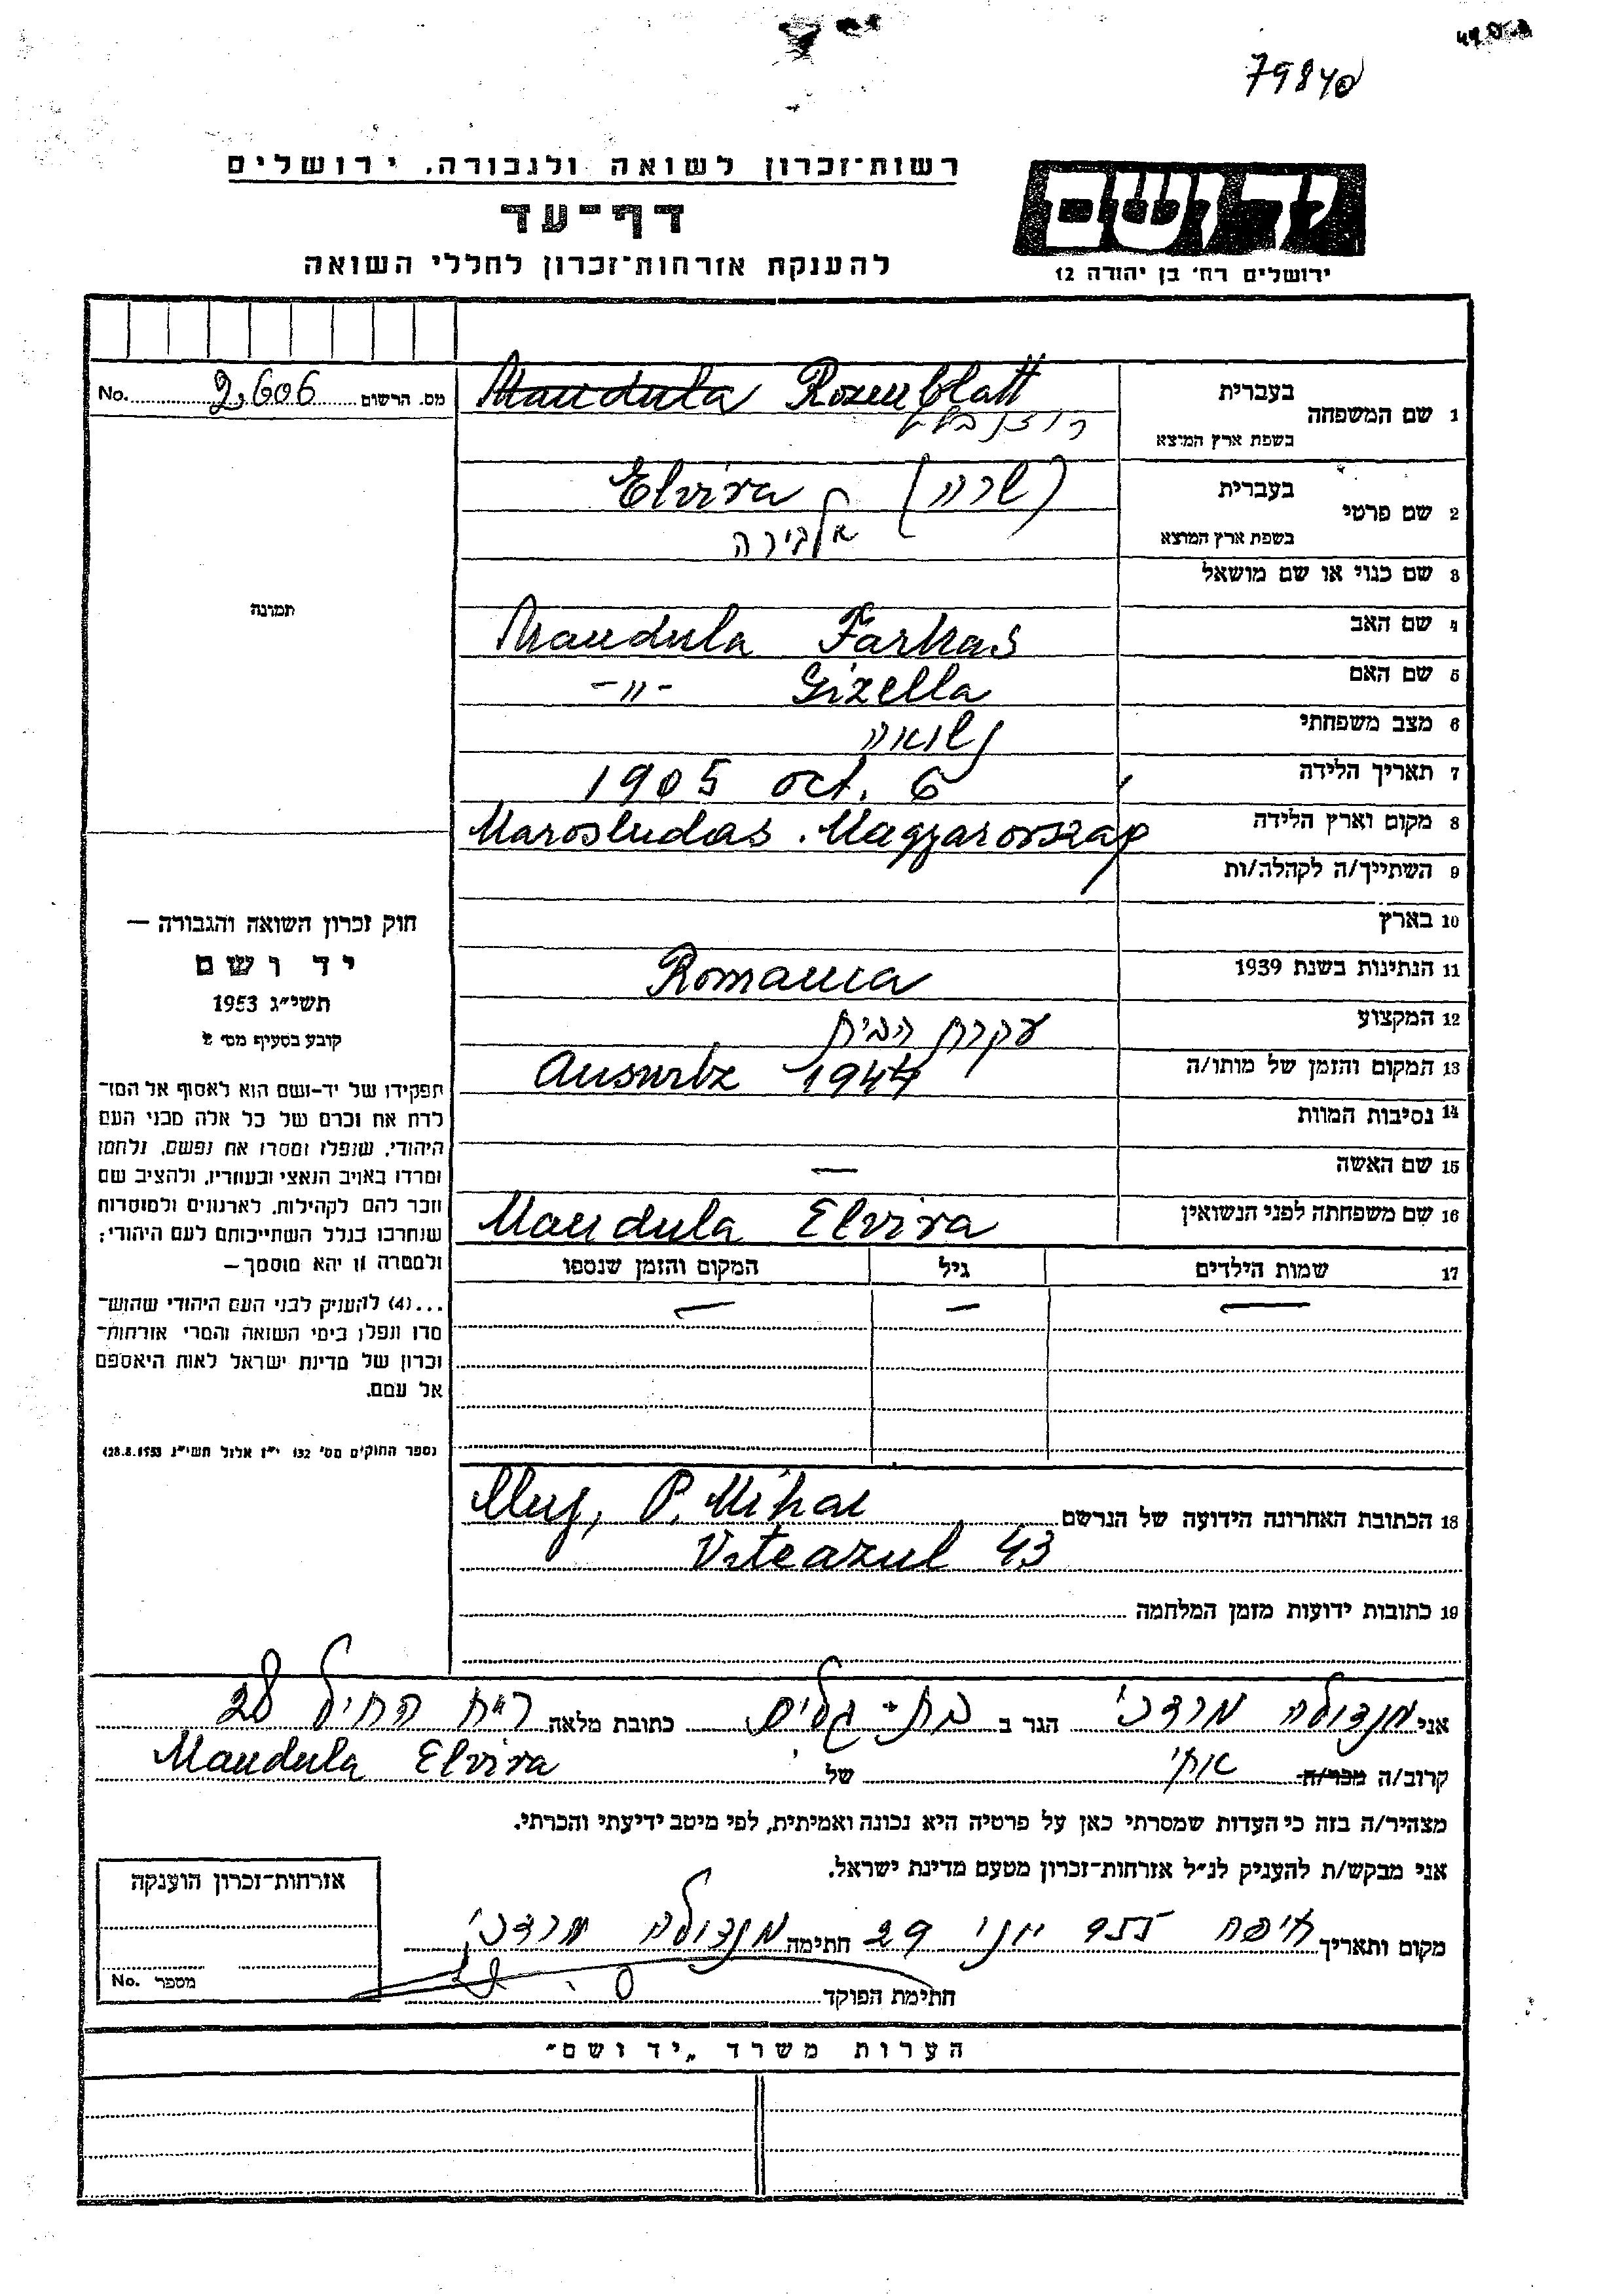 79840
רשות־זכרון לשואה ולגבורה, ירושלים
דף־עד
להענקת אזרחות־זכרון לחללי השואה
יד ושם
ירושלים רח' בן יהודה 12
No. 2,606 מס. הרשום
1 שם המשפחה בעברית Mandula Rozenblatt
בשפת ארץ המוצא רוזנבלט
2 שם פרטי בעברית Elvira (שרה)
בשפת ארץ המוצא אלבירה
3 שם כנוי או שם מושאל
תמונה
4 שם האב Mandula Farkas
5 שם האם -"- Gizella
6 מצב משפחתי נשואה
7 תאריך הלידה 1905 oct. 6
8 מקום וארץ הלידה Marosludas. Magyarország
9 השתייך/ה לקהלה/ות
10 בארץ
11 הנתינות בשנת 1939 Romania
12 המקצוע עקרת הבית
13 המקום והזמן של מותו/ה Auswitz 1944
14 נסיבות המוות
15 שם האשה —
16 שם משפחתה לפני הנשואין Mandula Elvira
17 שמות הילדים גיל המקום והזמן שנספו
— — —
חוק זכרון השואה והגבורה —
יד ושם
תשי"ג 1953
קובע בסעיף מס' 2
תפקידו של יד-ושם הוא לאסוף אל המו־
לדת את זכרם של כל אלה מבני העם
היהודי, שנפלו ומסרו את נפשם, נלחמו
ומרדו באויב הנאצי ובעוזריו, ולהציב שם
וזכר להם לקהילות, לארגונים ולמוסדות
שנחרבו בגלל השתייכותם לעם היהודי;
ולמטרה זו יהא מוסמך —
...(4) להעניק לבני העם היהודי שהוש־
מדו ונפלו בימי השואה והמרי אזרחות־
זכרון של מדינת ישראל לאות היאספם
אל עמם.
(ספר החוקים מס' 132 י"ז אלול תשי"ג 28.8.1953)
18 הכתובת האחרונה הידועה של הנרשם Cluj, P. Mihai
Viteazul 43
19 כתובות ידועות מזמן המלחמה
אני מנדולה מרדכי הגר ב בת-גלים כתובת מלאה רח החיל 28
קרוב/ה מכר/ה אחי של Mandula Elvira
מצהיר/ה בזה כי העדות שמסרתי כאן על פרטיה היא נכונה ואמיתית, לפי מיטב ידיעתי והכרתי.
אני מבקש/ת להעניק לנ"ל אזרחות־זכרון מטעם מדינת ישראל.
מקום ותאריך חיפה 955 יוני 29 חתימה מנדולה מרדכי
חתימת הפוקד
אזרחות־זכרון הוענקה
No. מספר
הערות משרד „יד ושם"